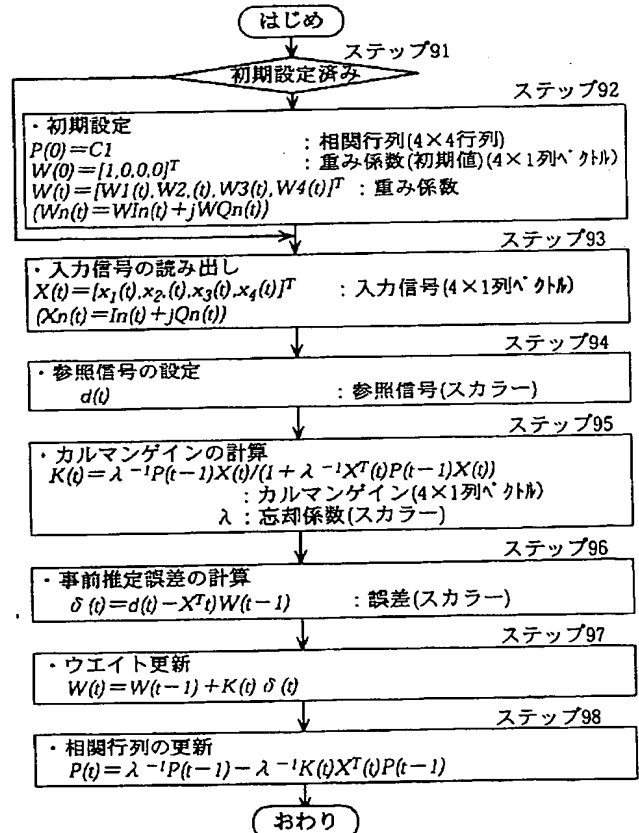 はじめ
ステップ91
初期設定済み
ステップ92
・初期設定
P(0)=C1 :相関行列(4×4行列)
W(0)=[1,0,0,0]ᵀ :重み係数(初期値)(4×1列ベクトル)
W(t)=[W1(t),W2,(t),W3(t),W4(t)]ᵀ :重み係数
(Wn(t)=WIn(t)+jWQn(t))
ステップ93
・入力信号の読み出し
X(t)=[x₁(t),x₂,(t),x₃(t),x₄(t)]ᵀ :入力信号(4×1列ベクトル)
(Xn(t)=In(t)+jQn(t))
ステップ94
・参照信号の設定
d(t) :参照信号(スカラー)
ステップ95
・カルマンゲインの計算
K(t)=λ⁻¹P(t−1)X(t)/(1+λ⁻¹Xᵀ(t)P(t−1)X(t))
:カルマンゲイン(4×1列ベクトル)
λ:忘却係数(スカラー)
ステップ96
・事前推定誤差の計算
δ(t)=d(t)−Xᵀt)W(t−1) :誤差(スカラー)
ステップ97
・ウエイト更新
W(t)=W(t−1)+K(t)δ(t)
ステップ98
・相関行列の更新
P(t)=λ⁻¹P(t−1)−λ⁻¹K(t)Xᵀ(t)P(t−1)
おわり